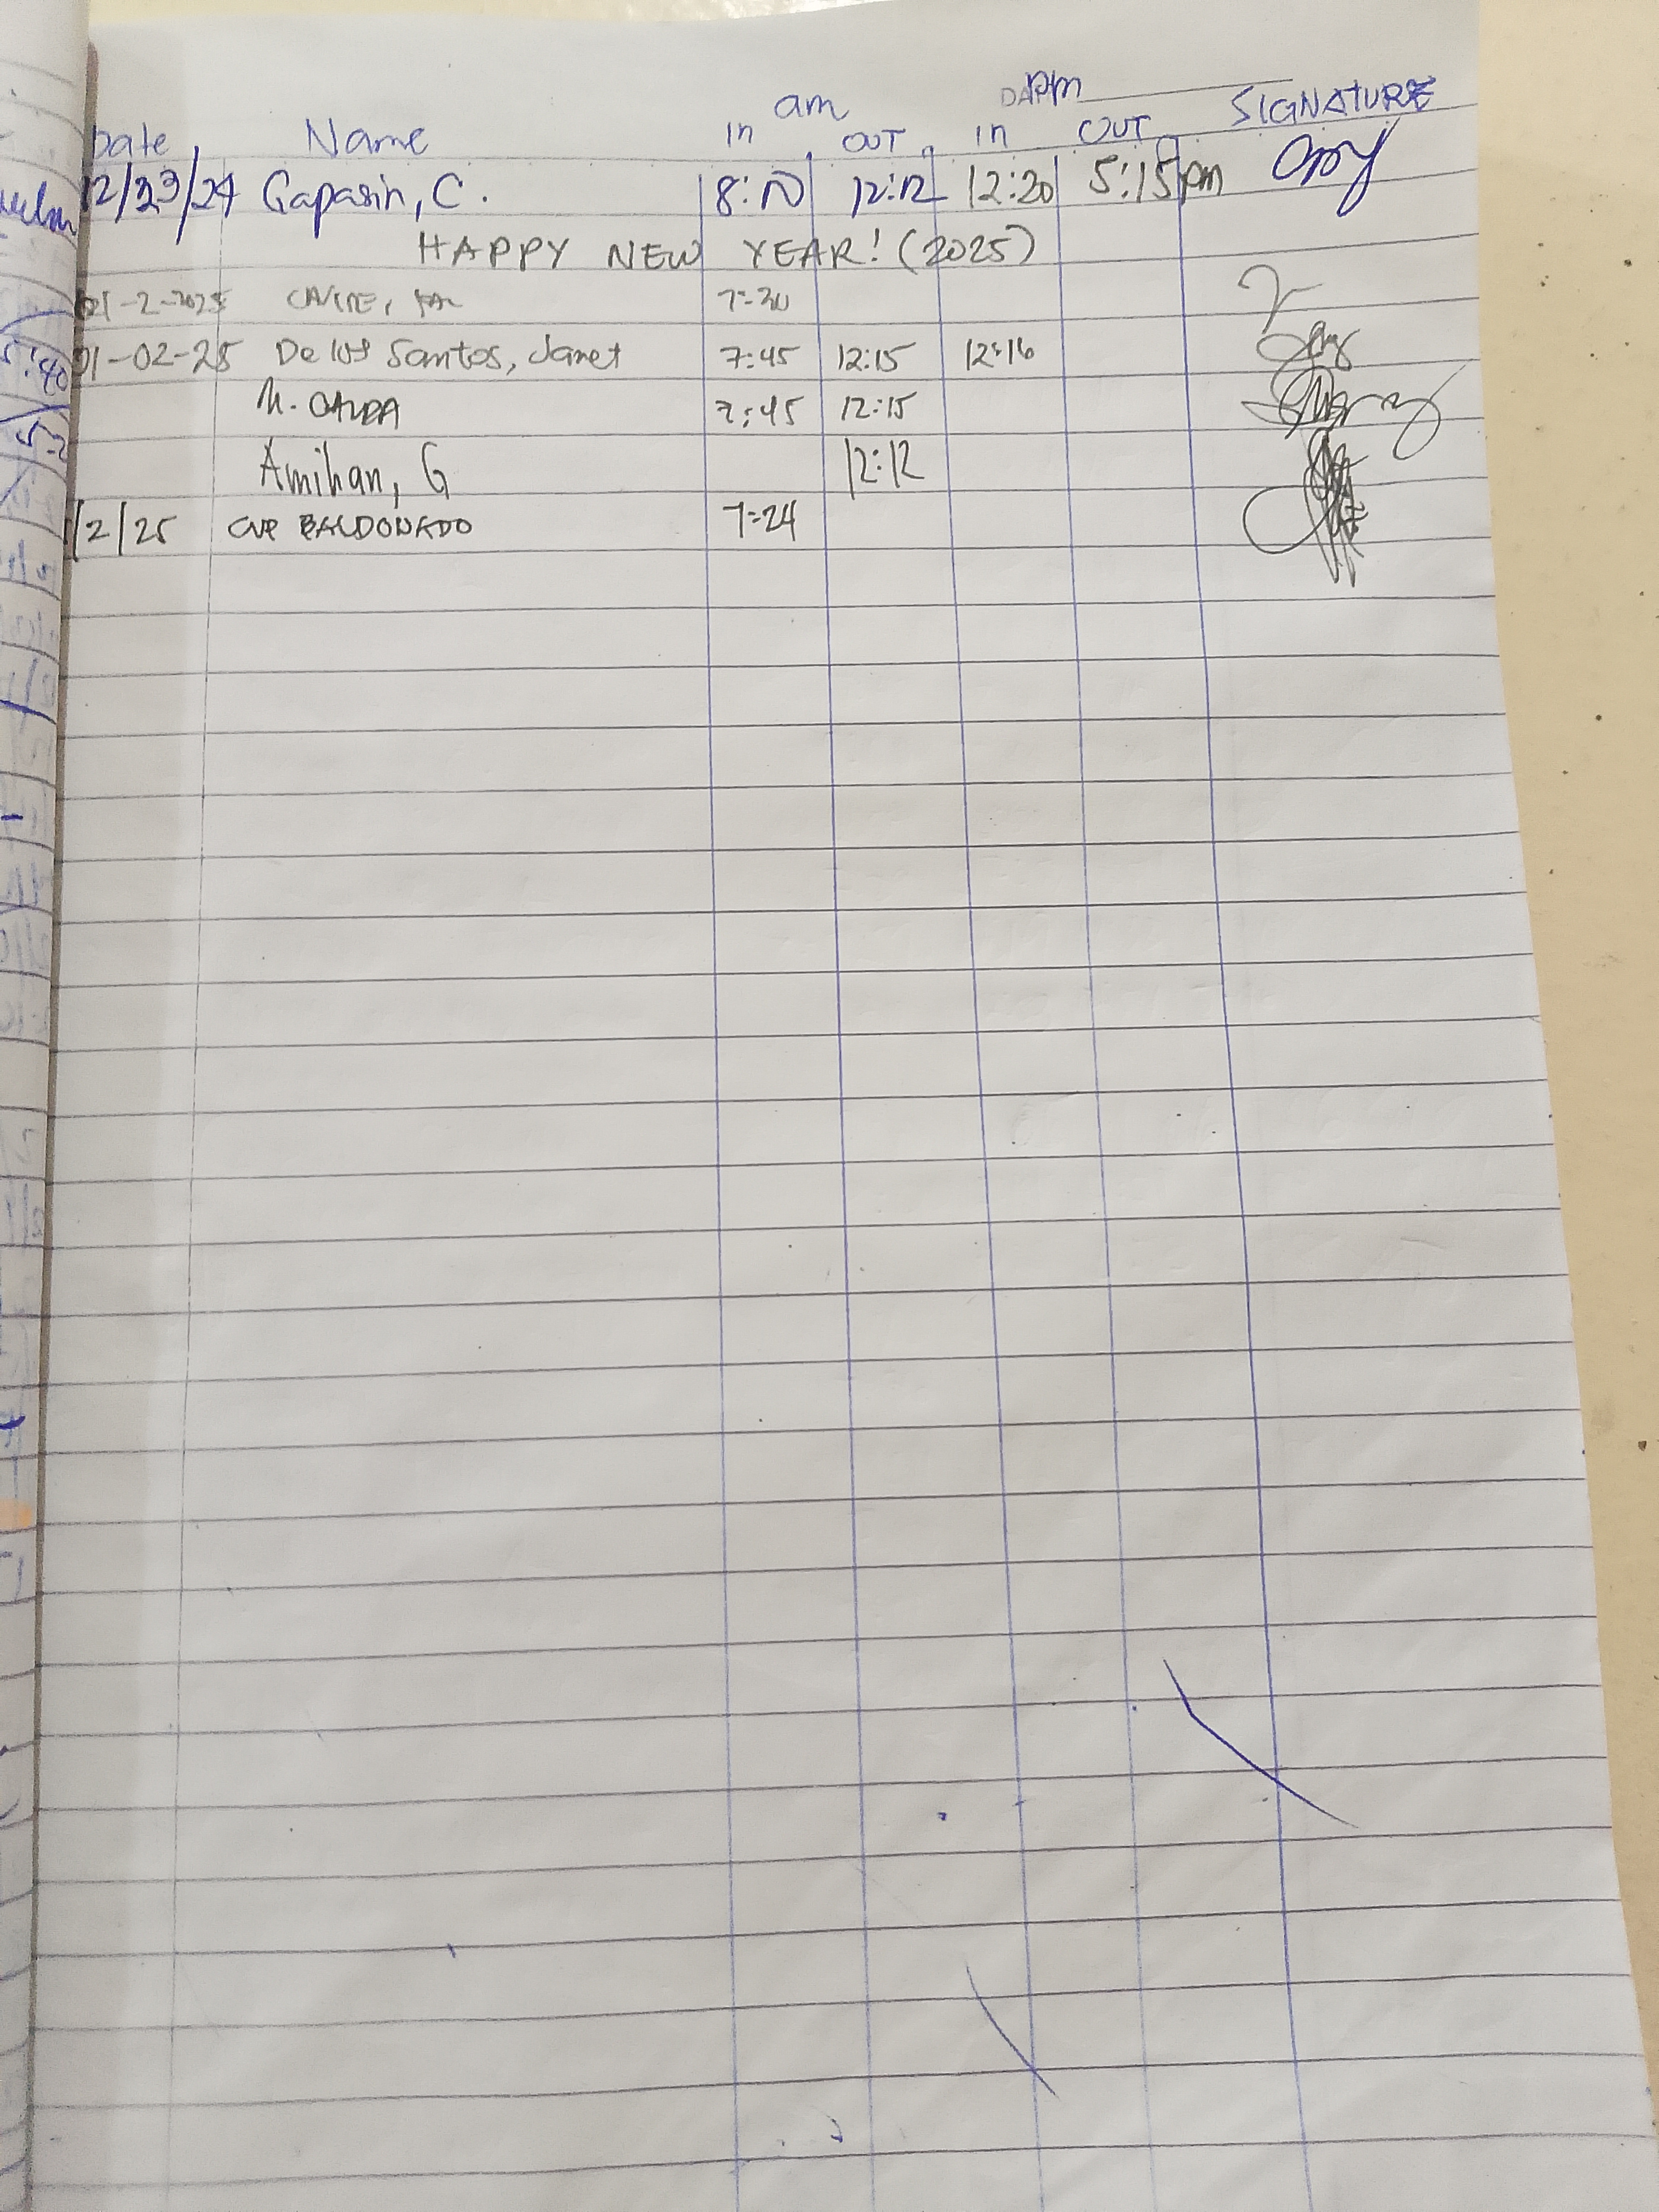 DATE pm
am
Date Name In OUT In OUT SIGNATURE
12/23/24 Gapasin, C. 8:10 12:12 12:20 5:15 pm
HAPPY NEW YEAR! (2025)
01-2-2025 7:30
01-02-25 De los Santos, Janet 7:45 12:15 12:16
M. 7:45 12:15
Amihan, G 12:12
1/2/25 CVP BALDONADO 7:24